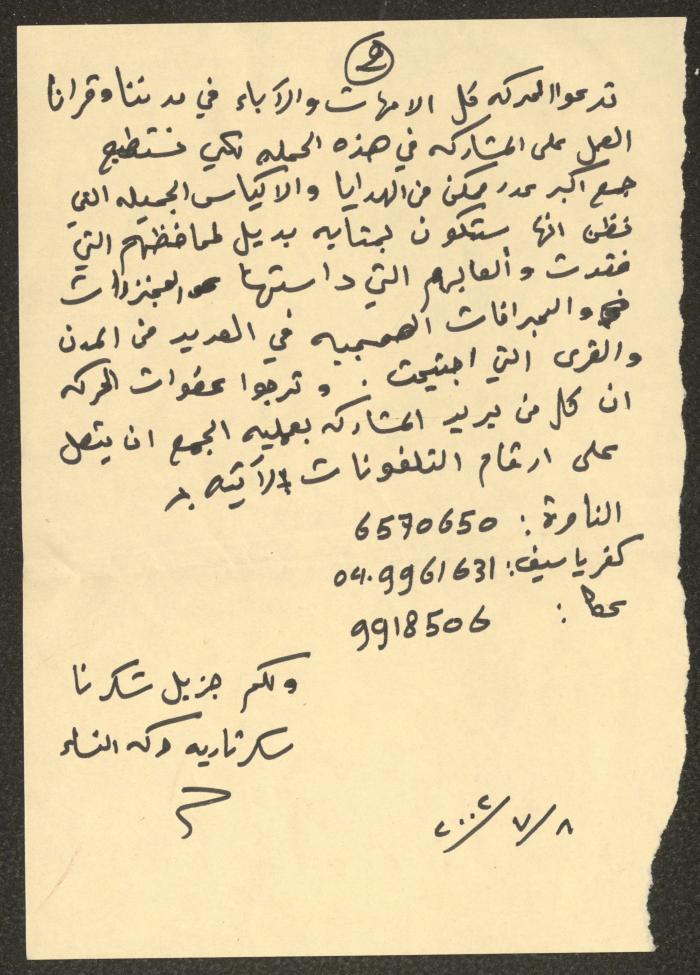 ٢
تدعوا الحركه كل الامهات والآباء في مدننا وقرانا
العمل على المشاركه في هذه الحمله لكي نستطيع
جمع اكبر عدد ممكن من الهدايا والاكياس الجميله التي
نظن انها ستكون بمثابه بديل لمحافظهم التي
فقدت وألعابهم التي داستها المجنزرات
والجرافات الهمجيه في العديد من المدن
والقرى التي اجتيحت . وترجوا عضوات الحركه
ان كل من يريد المشاركه بعمليه الجمع ان يتصل
على ارقام التلفونات الآتيه :
الناصرة : 6570650
كفر ياسيف : 04.9961631
عكا : 9918506
ولكم جزيل شكرنا
سكرتاريه حركه النساء
٨/٧/٢٠٠٢